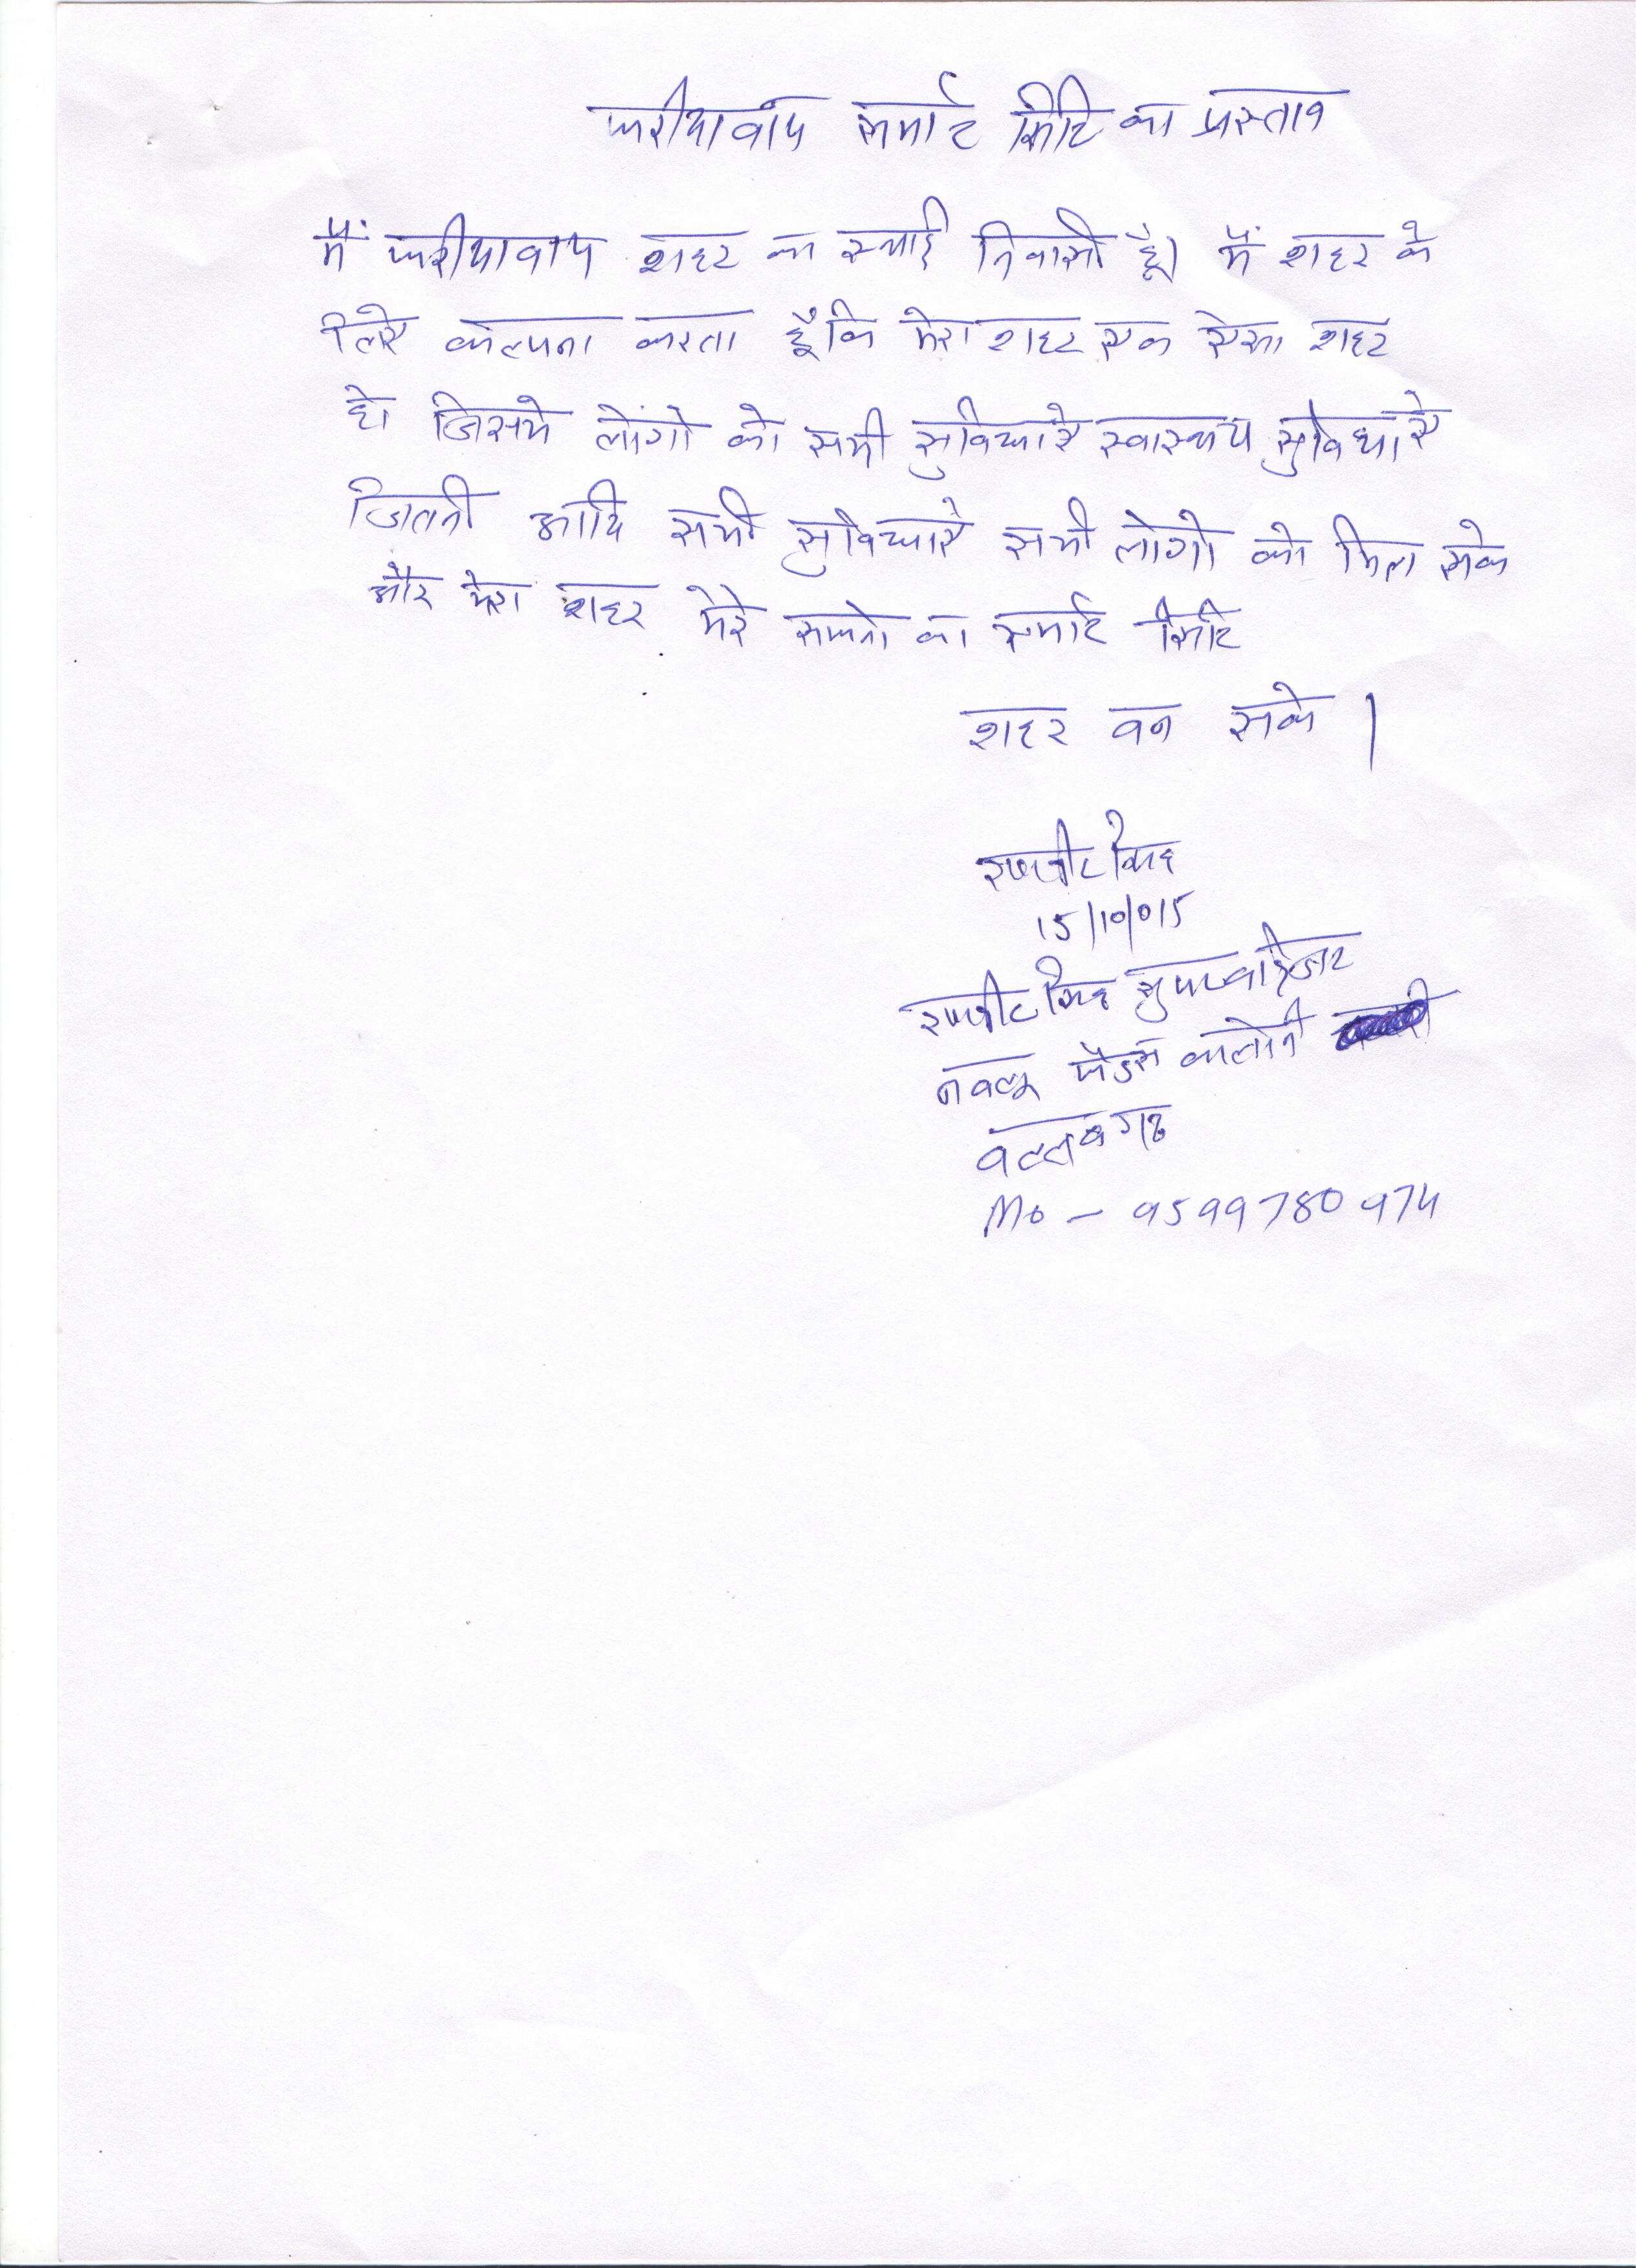 फरीदाबाद स्मार्ट सिटि का प्रस्ताव
मैं फरीदाबाद शहर का स्थाई निवासी हूँ। मैं शहर के
लिए कल्पना करता हूँ कि मेरा शहर एक ऐसा शहर
हो जिसमे लोंगो को सभी सुविधाऐ स्वास्थय सुविधाऐ
जितनी आदि सभी सुविधाऐ सभी लोगो को मिल सके
और मेरा शहर मेरे सपनो का स्मार्ट सिटि
शहर बन सके |
रणजीत सिंह
15/10/015
रणजीत सिंह सुपरवाईजर
कालोनी
बल्लबगढ
Mo - 9599780974